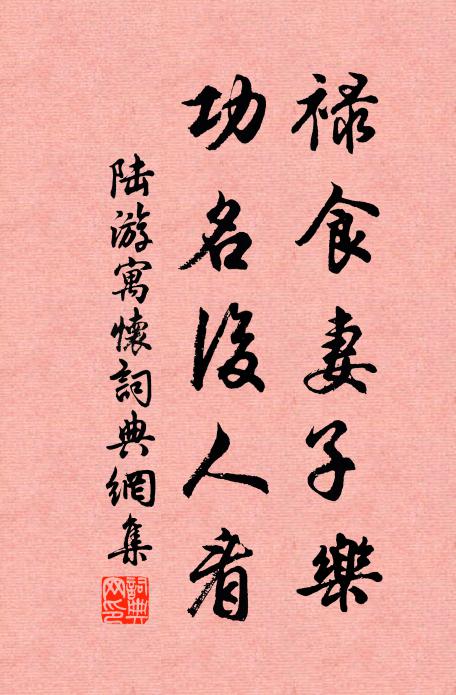 祿食妻子樂
功名後人看
陸游寓懷詞典網集
詞典網印